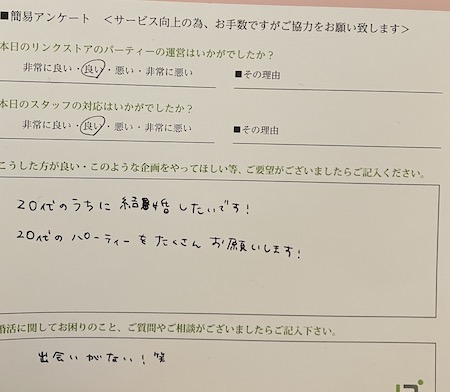 ■簡易アンケート ＜サービス向上の為、お手数ですがご協力をお願い致します＞
本日のリンクストアのパーティーの運営はいかがでしたか？
非常に良い・良い・悪い・非常に悪い ■その理由
本日のスタッフの対応はいかがでしたか？
非常に良い・良い・悪い・非常に悪い ■その理由
こうした方が良い・このような企画をやってほしい等、ご要望がございましたらご記入ください。
20代のうちに結婚したいです！
20代のパーティーをたくさんお願いします！
婚活に関してお困りのこと、ご質問やご相談がございましたらご記入下さい。
出会いがない！笑